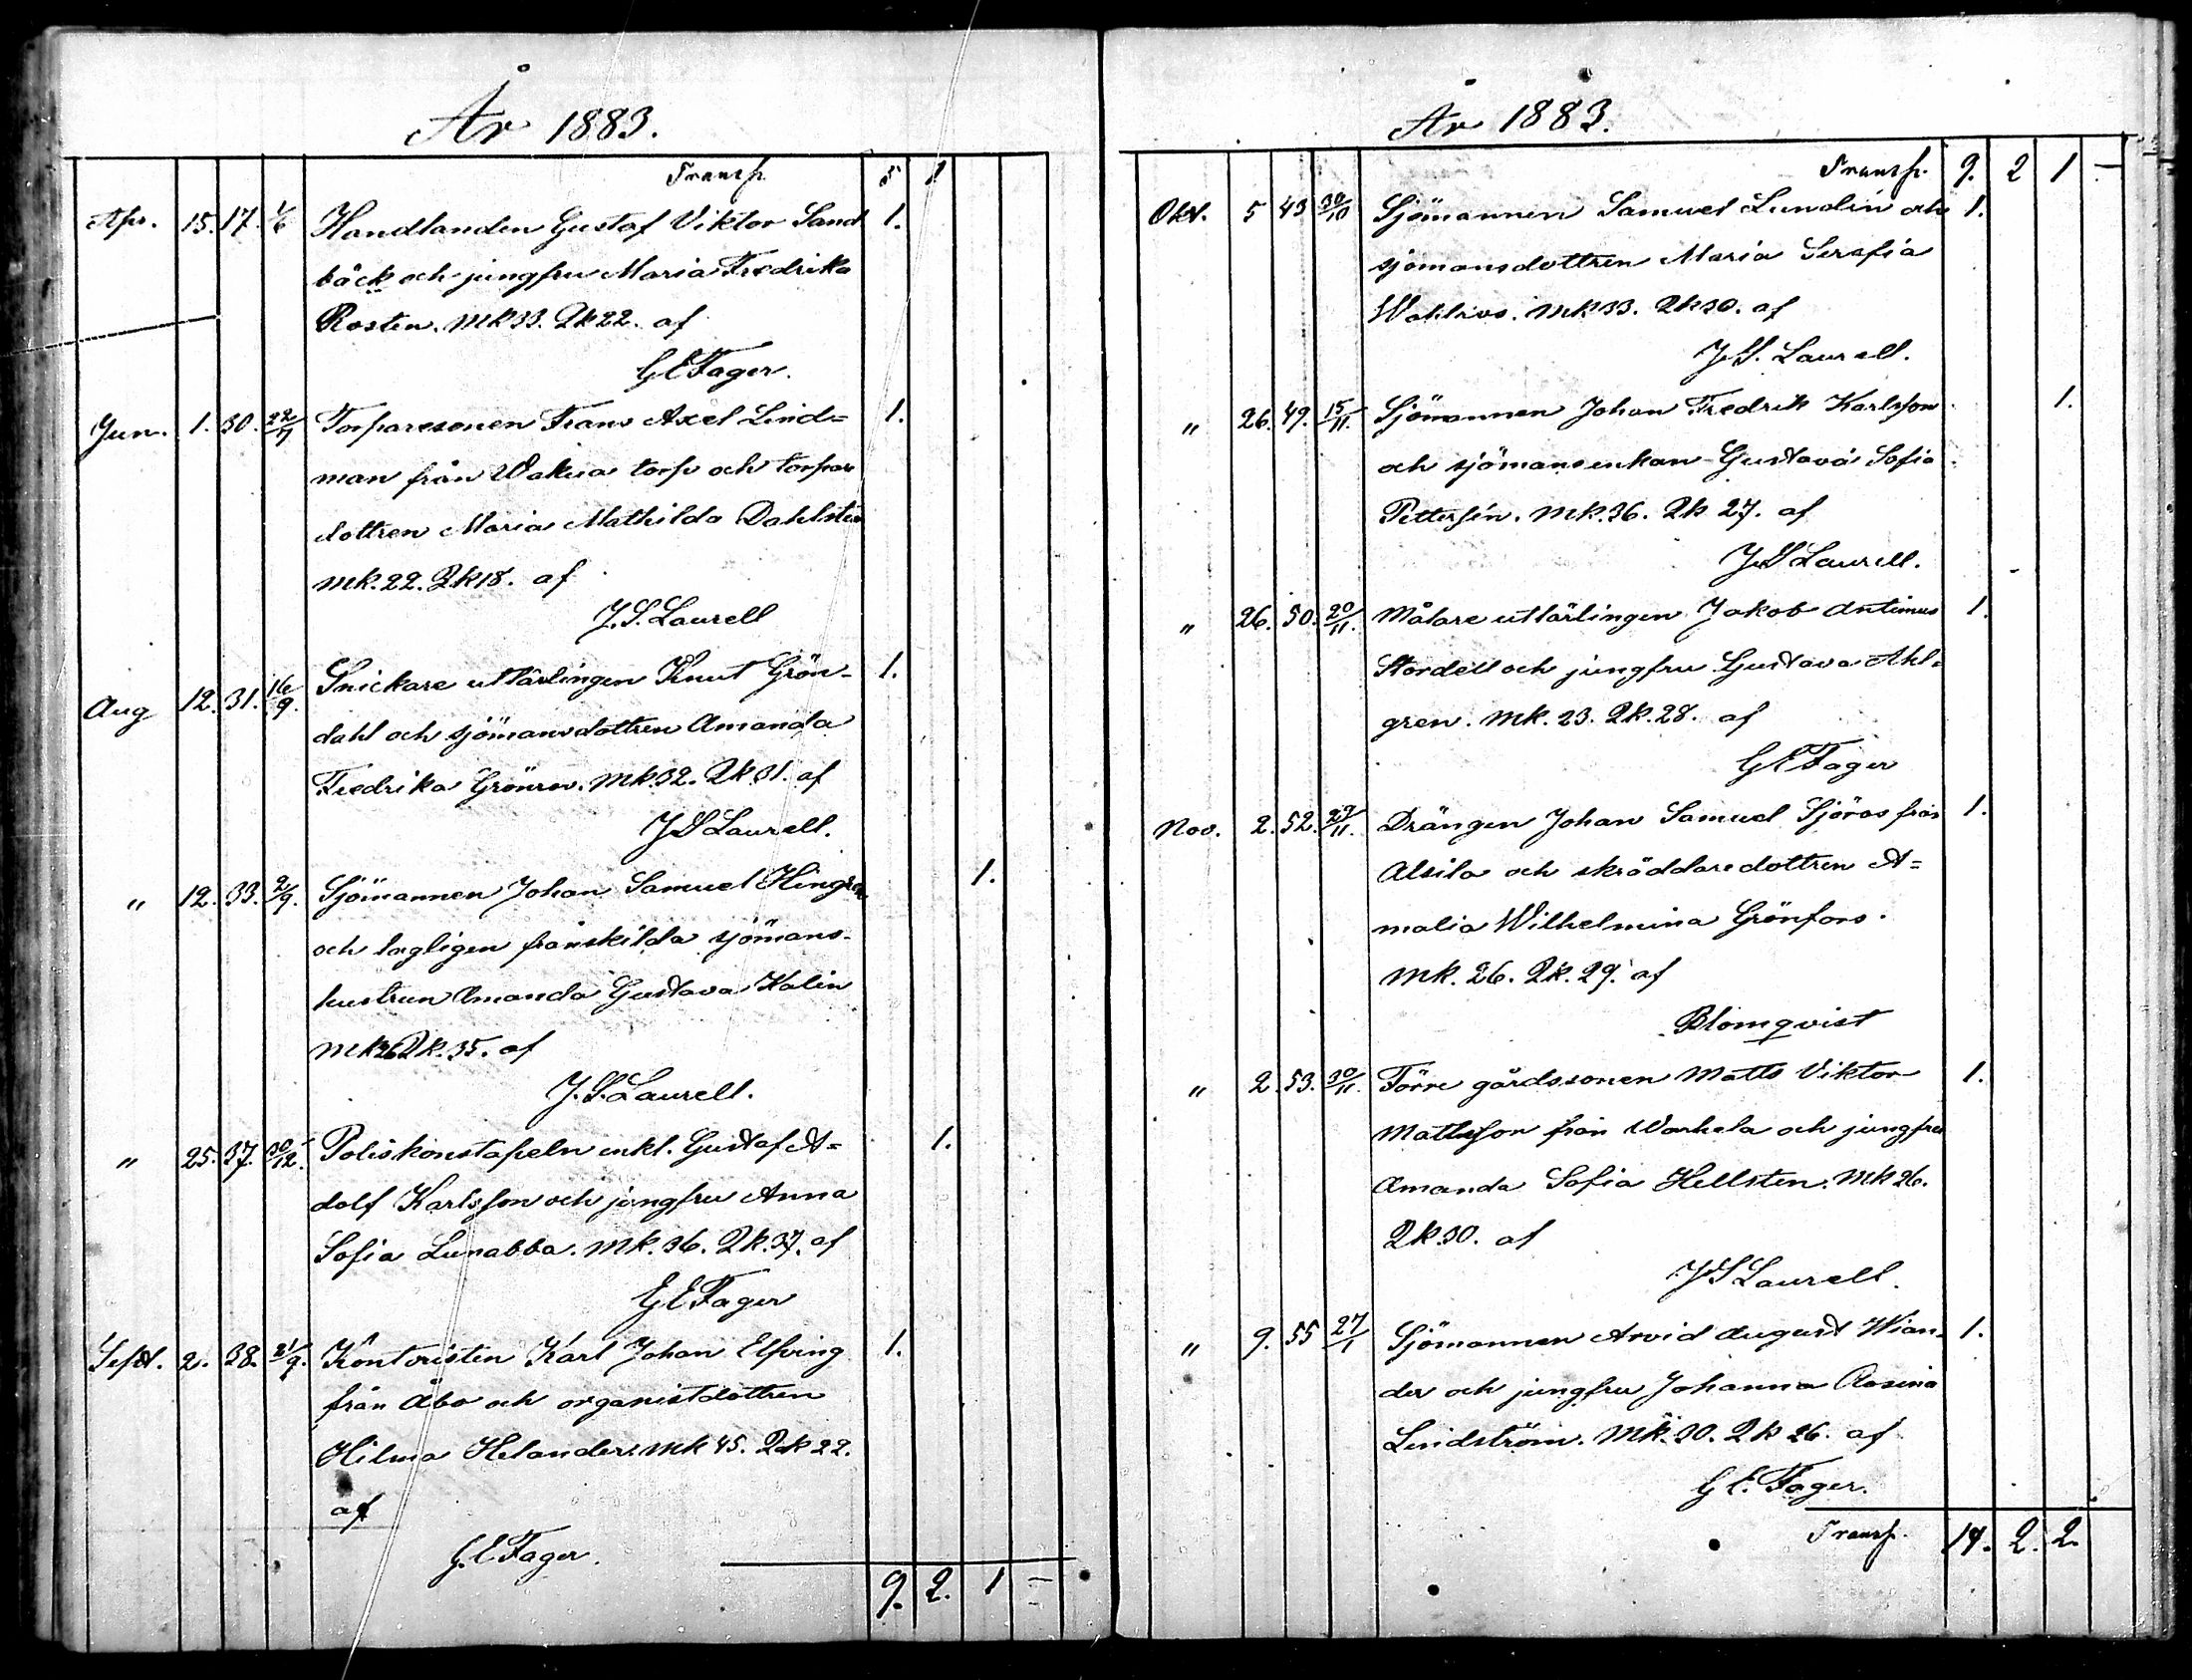 År 1883.
Transp. 5 1
Apr. 15. 17. 1/6 Handlanden Gustaf Viktor Sand 1.
bäck och jungfru Maria Fredrika
Rosten. Mk 33. Qk 22. af
G E Fager.
Jun. 1. 30. Torparesonen Frans Axel Lind= 1.
man från Wakua torp och torpare
dottren Maria Mathilda Dahlsten
mk. 22. Qk 18. af
J. S. Laurell
Aug 12. 31. 16/9. Snickare utlärlingen Knut Grön- 1.
dahl och sjömansdottren Amanda
Fredrika Grönros. Mk. 32. Qk 31. af
J S Laurell.
" 12. 33. 2/9. Sjömannen Johan Samuel Hingren 1.
och lagligen frånskilda sjömans-
hustrun Amanda Gustava Kalin
Mk 26 Qk. 35. af
J. S. Laurell.
" 25. 37. 30/12. Poliskonstapeln enkl. Gustaf A= 1.
dolf Karlsson och jungfru Anna
Sofia Lunabba. Mk. 36. Qk. 37. af
G E Fager
Sept. 2. 38. 21/9. Kontoristen Karl Johan Elfving 1.
från Åbo och organistdottren
Hilma Helander. mk 45. Qk 22.
af
G. E Fager.
9. 2. 1 -
År 1883.
Transp. 9. 2 1 -
Okt. 5 43 30/10 Sjömannen Samuel Lundin och 1.
sjömansdottren Maria Serafia
Wahlros. Mk 33. Qk 30. af
J. S. Laurell.
" 26. 49. 15/11. Sjömannen Johan Fredrik Karlsson 1.
och sjömansenkan Gustava Sofia
Pettersén. Mk. 36. Qk 27. af
J S Laurell.
" 26. 50. 20/11. Målare utlärlingen Jakob Antimus 1.
Stordell och jungfru Gustava Ahl-
gren. Mk. 23. Qk. 28. af
G E Fager
Nov. 2. 52. 29/11. Drängen Johan Samuel Sjöros från 1.
Alsila och skräddaredottren A=
malia Wilhelmina Grönfors.
Mk. 26. Qk. 29. af
Blomqvist
" 2. 53. 30/11. Förre gårdssonen Matts Viktor 1.
Mattsson från Warhela och jungfru
Amanda Sofia Hellsten. Mk 26.
Qk 30. af
J S Laurell.
" 9. 55 27/1 Sjömannen Arvid August Wian- 1.
der och jungfru Johanna Rosina
Lindström. Mk. 30. Qk 26. af
G E. Fager.
Transp. 14. 2. 2.